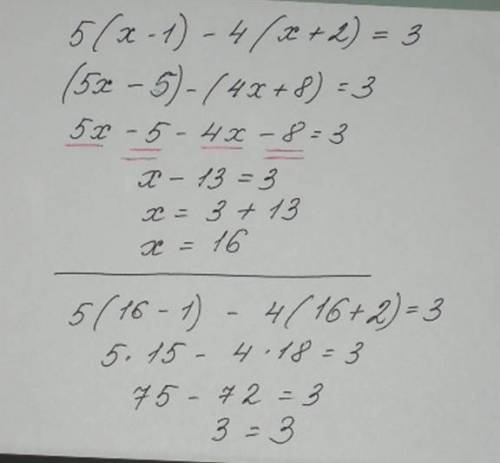 5(x-1) - 4(x+2) = 3
(5x - 5) - (4x+8) = 3
5x - 5 - 4x - 8 = 3
x - 13 = 3
x = 3 + 13
x = 16
5(16-1) - 4(16+2) = 3
5·15 - 4·18 = 3
75 - 72 = 3
3 = 3